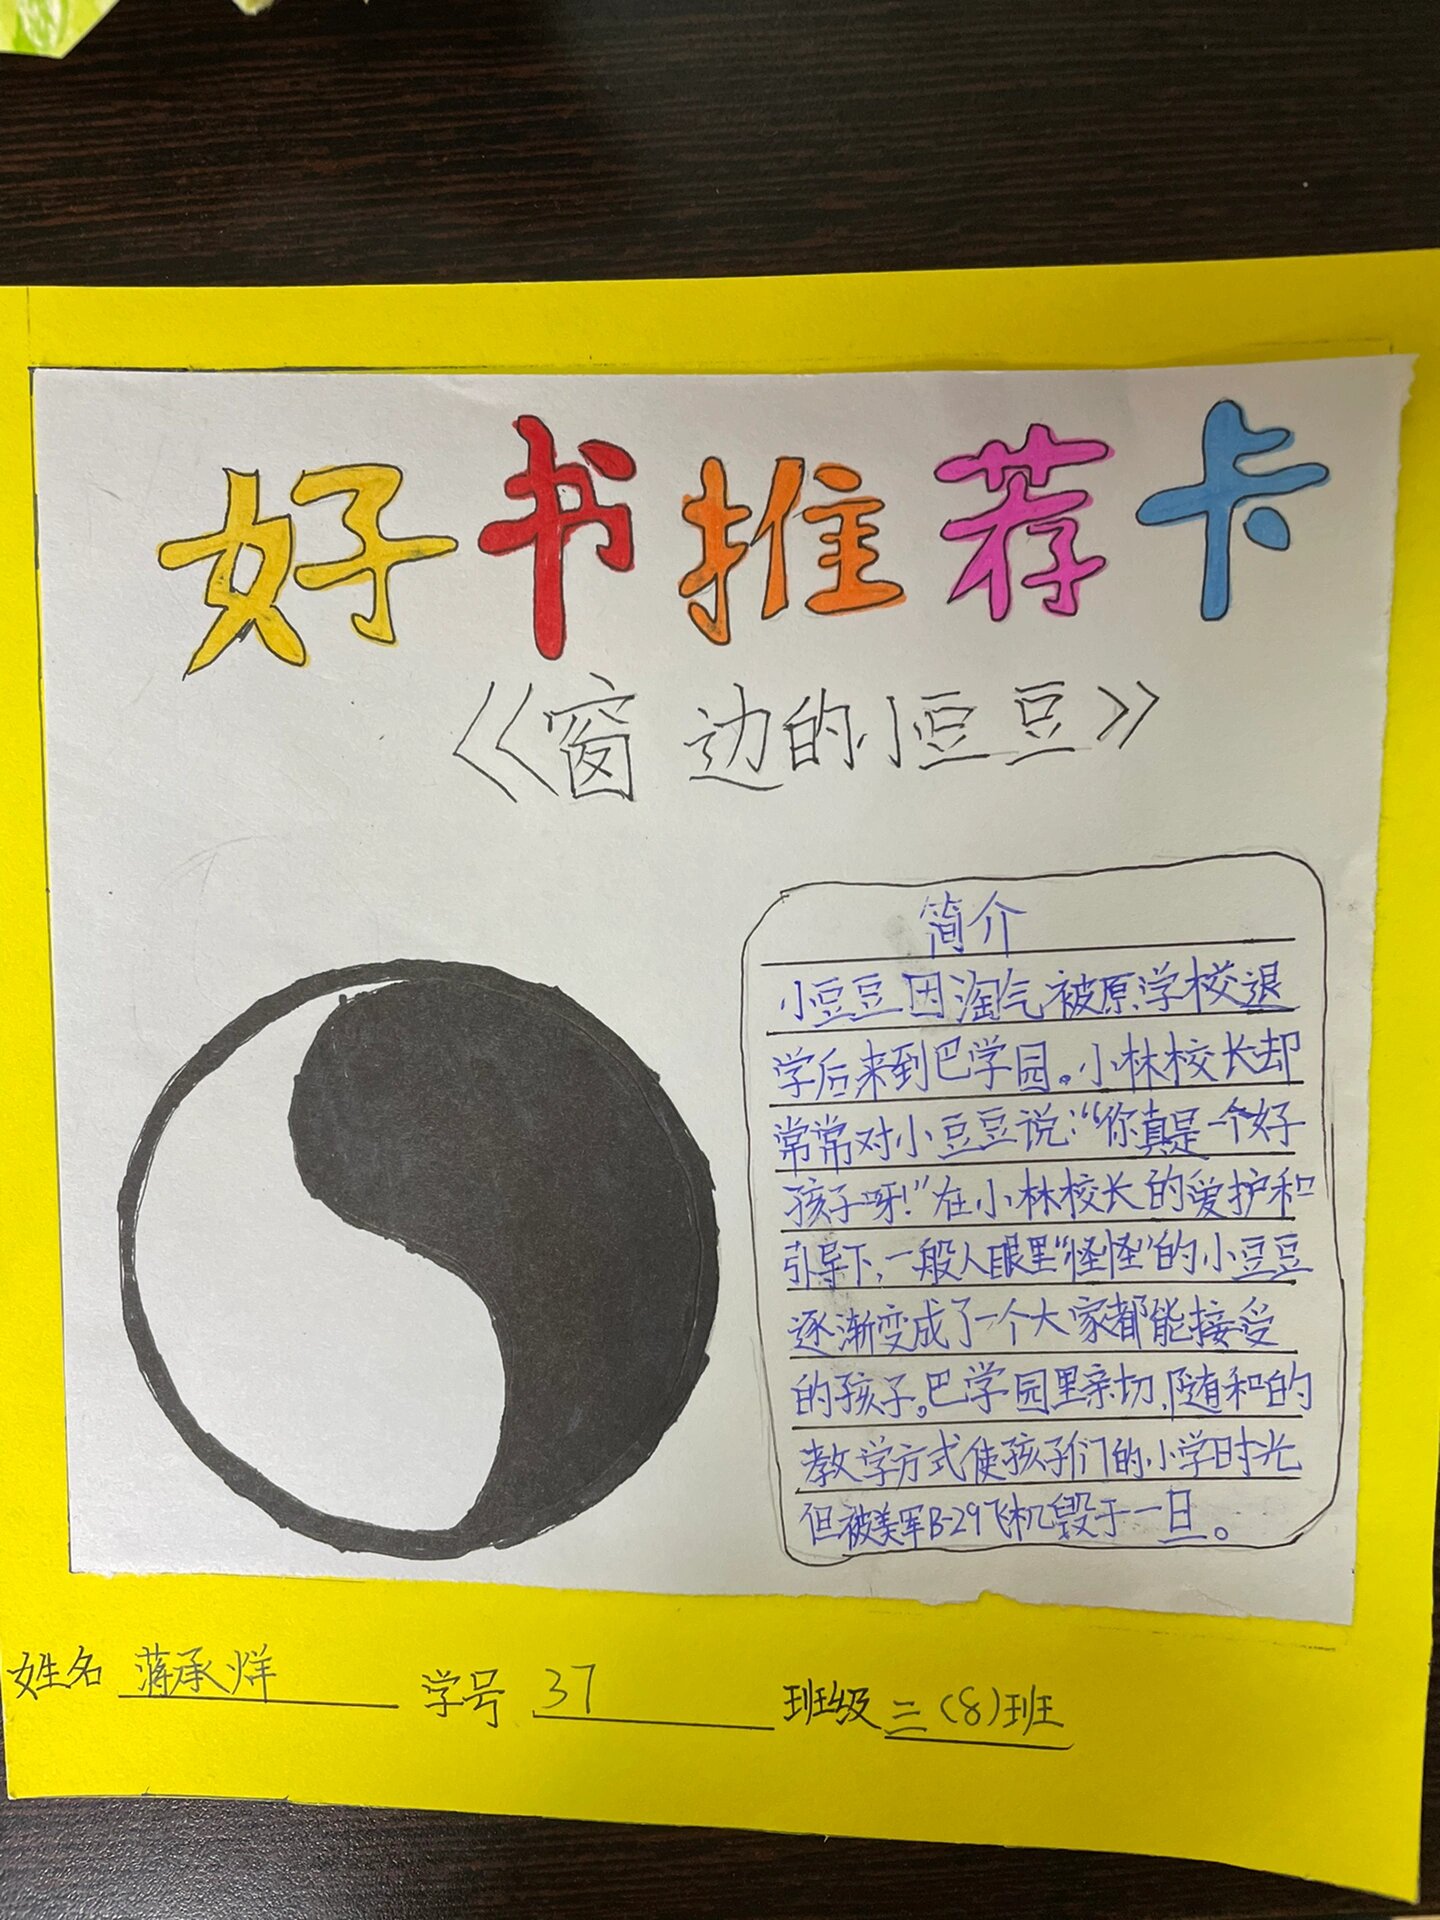 好书推荐卡
《窗边的小豆豆》
简介
小豆豆因淘气被原学校退
学后来到巴学园。小林校长却
常常对小豆豆说:“你真是一个好
孩子呀!”在小林校长的爱护和
引导下,一般人眼里“怪怪”的小豆豆
逐渐变成了一个大家都能接受
的孩子。巴学园里亲切、随和的
教学方式使孩子们的小学时光
但被美军B-29飞机毁于一旦。
姓名 蒋承烊 学号 37 班级 三(8)班